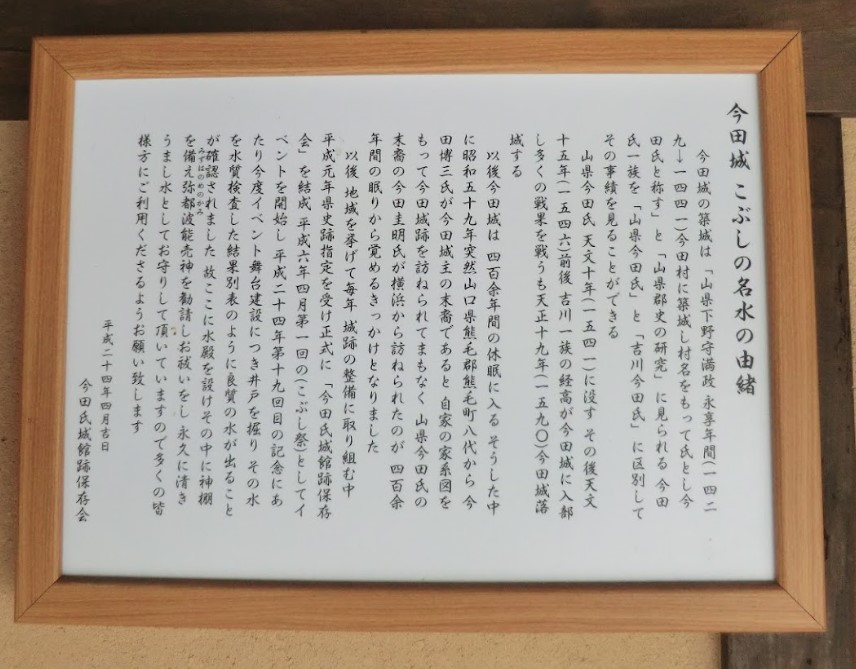 今田城 こぶしの名水の由緒
今田城の築城は 「山県下野守満政 永享年間(一四二
九→一四四一)今田村に築城し村名をもって氏とし今
田氏と称す」と「山県郡史の研究」に見られる 今田
氏一族を「山県今田氏」と「吉川今田氏」に区別して
その事績を見ることができる
山県今田氏 天文十年(一五四一)に没す その後天文
十五年(一五四六)前後 吉川一族の経高が今田城に入部
し多くの戦果を戦うも天正十九年(一五九〇)今田城落
城する
以後今田城は 四百余年間の休眠に入る そうした中
に昭和五十九年突然山口県熊毛郡熊毛町八代から 今
田博三氏が今田城主の末裔であると 自家の家系図を
もって今田城跡を訪ねられてまもなく 山県今田氏の
末裔の今田圭明氏が横浜から訪ねられたのが 四百余
年間の眠りから覚めるきっかけとなりました
以後 地域を挙げて毎年 城跡の整備に取り組む中
平成元年県史跡指定を受け正式に 「今田氏城館跡保存
会」を結成 平成六年四月第一回の(こぶし祭)としてイ
ベントを開始し 平成二十四年第十九回目の記念にあ
たり今度イベント舞台建設につき井戸を掘り その水
を水質検査した結果別表のように良質の水が出ること
が確認されました 故ここに水殿を設けその中に神棚
みずはのめのかみ
を備え弥都波能売神を勧請しお祓いをし 永久に清き
うまし水としてお守りして頂いていますので多くの皆
様方にご利用くださるようお願い致します
平成二十四年四月吉日
今田氏城館跡保存会